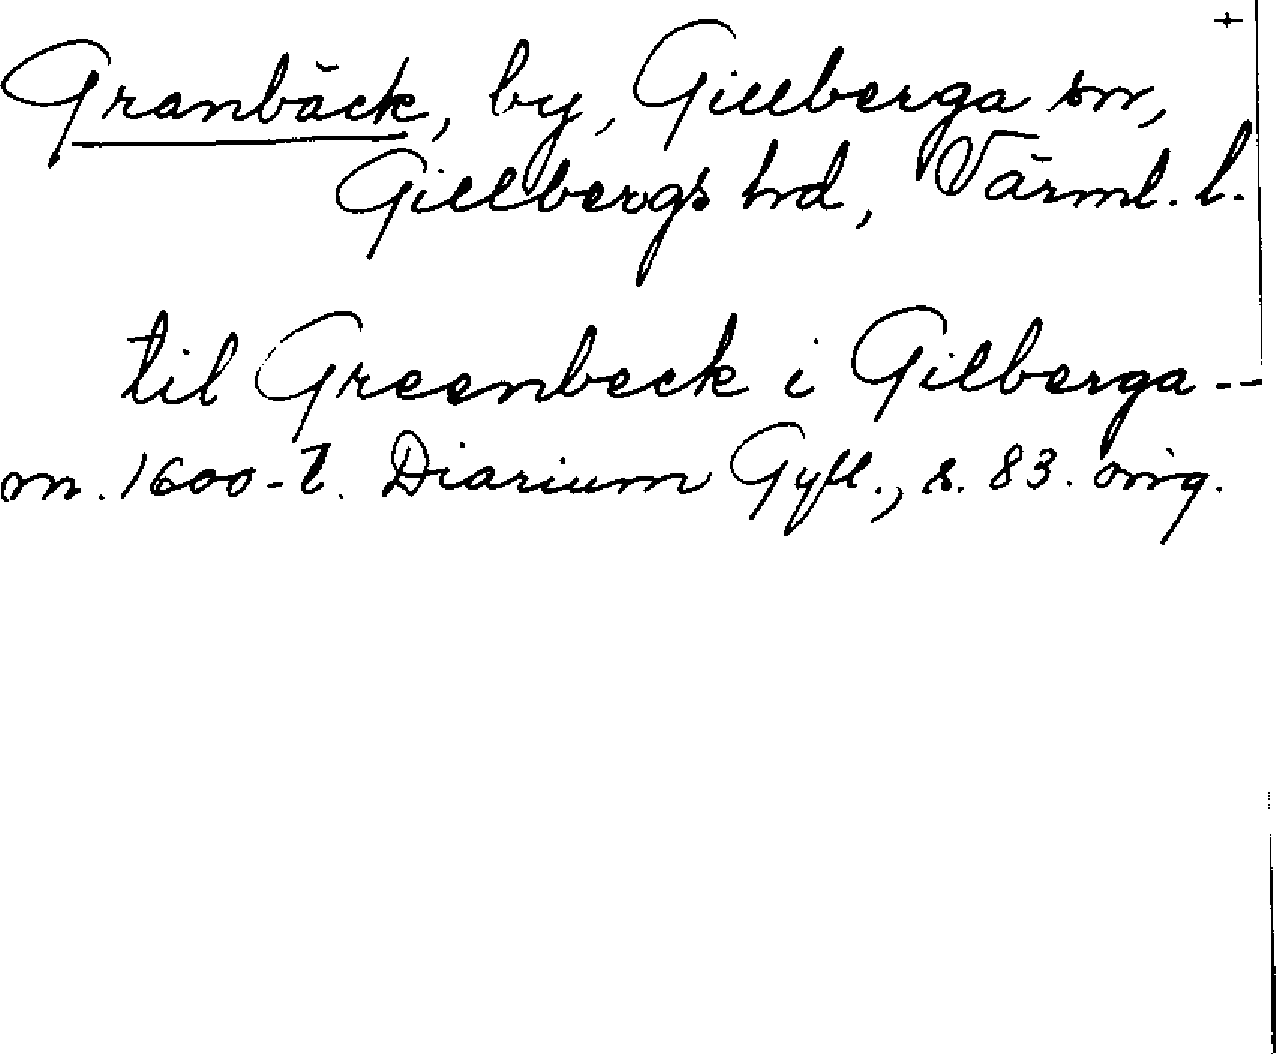 +
Granbäck, by, Gillberga sn,
Gillbergs hd, Värml. l.
til Greenbeck i Gilberga --
m. 1600-t. Diarium Gyll., s. 83. orig.